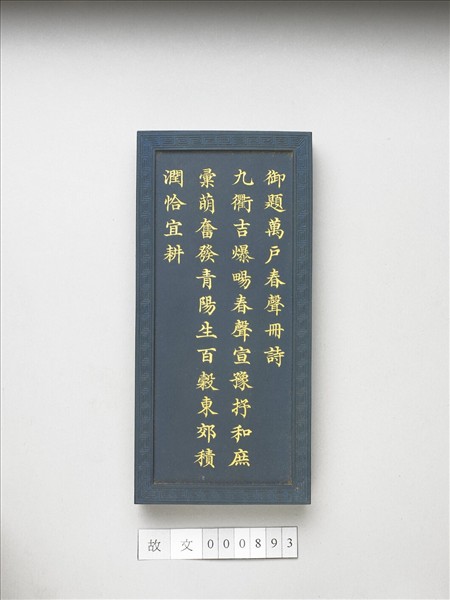 御題萬戶春聲冊詩
九衢吉爆暢春聲宣豫抒和庶
彙萌奮發青陽生百穀東郊積
潤恰宜耕
故文000893